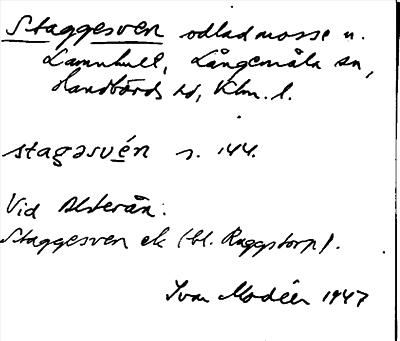 Staggesven odlad mosse u.
Lammhult, Långemåla sn,
Handbörds hd, Klm. l.
stagəsvén s. 144.
Vid Alsterån.
Staggesven ek (bl. Ruggstorp).
Ivar Modéer 1947